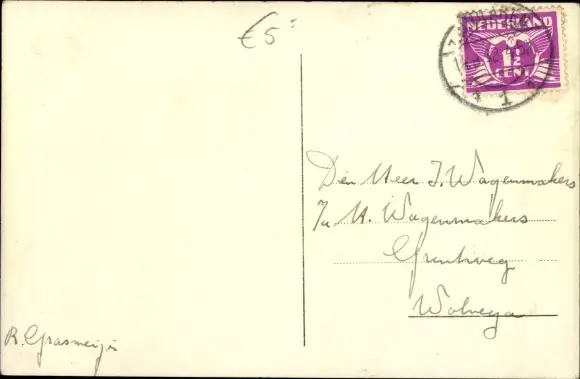 €5=
NEDERLAND
1½
CENT
1
Den Heer J. Wagenmakers
p/a H. Wagenmakers
Wolvega
R. Grasmeijer